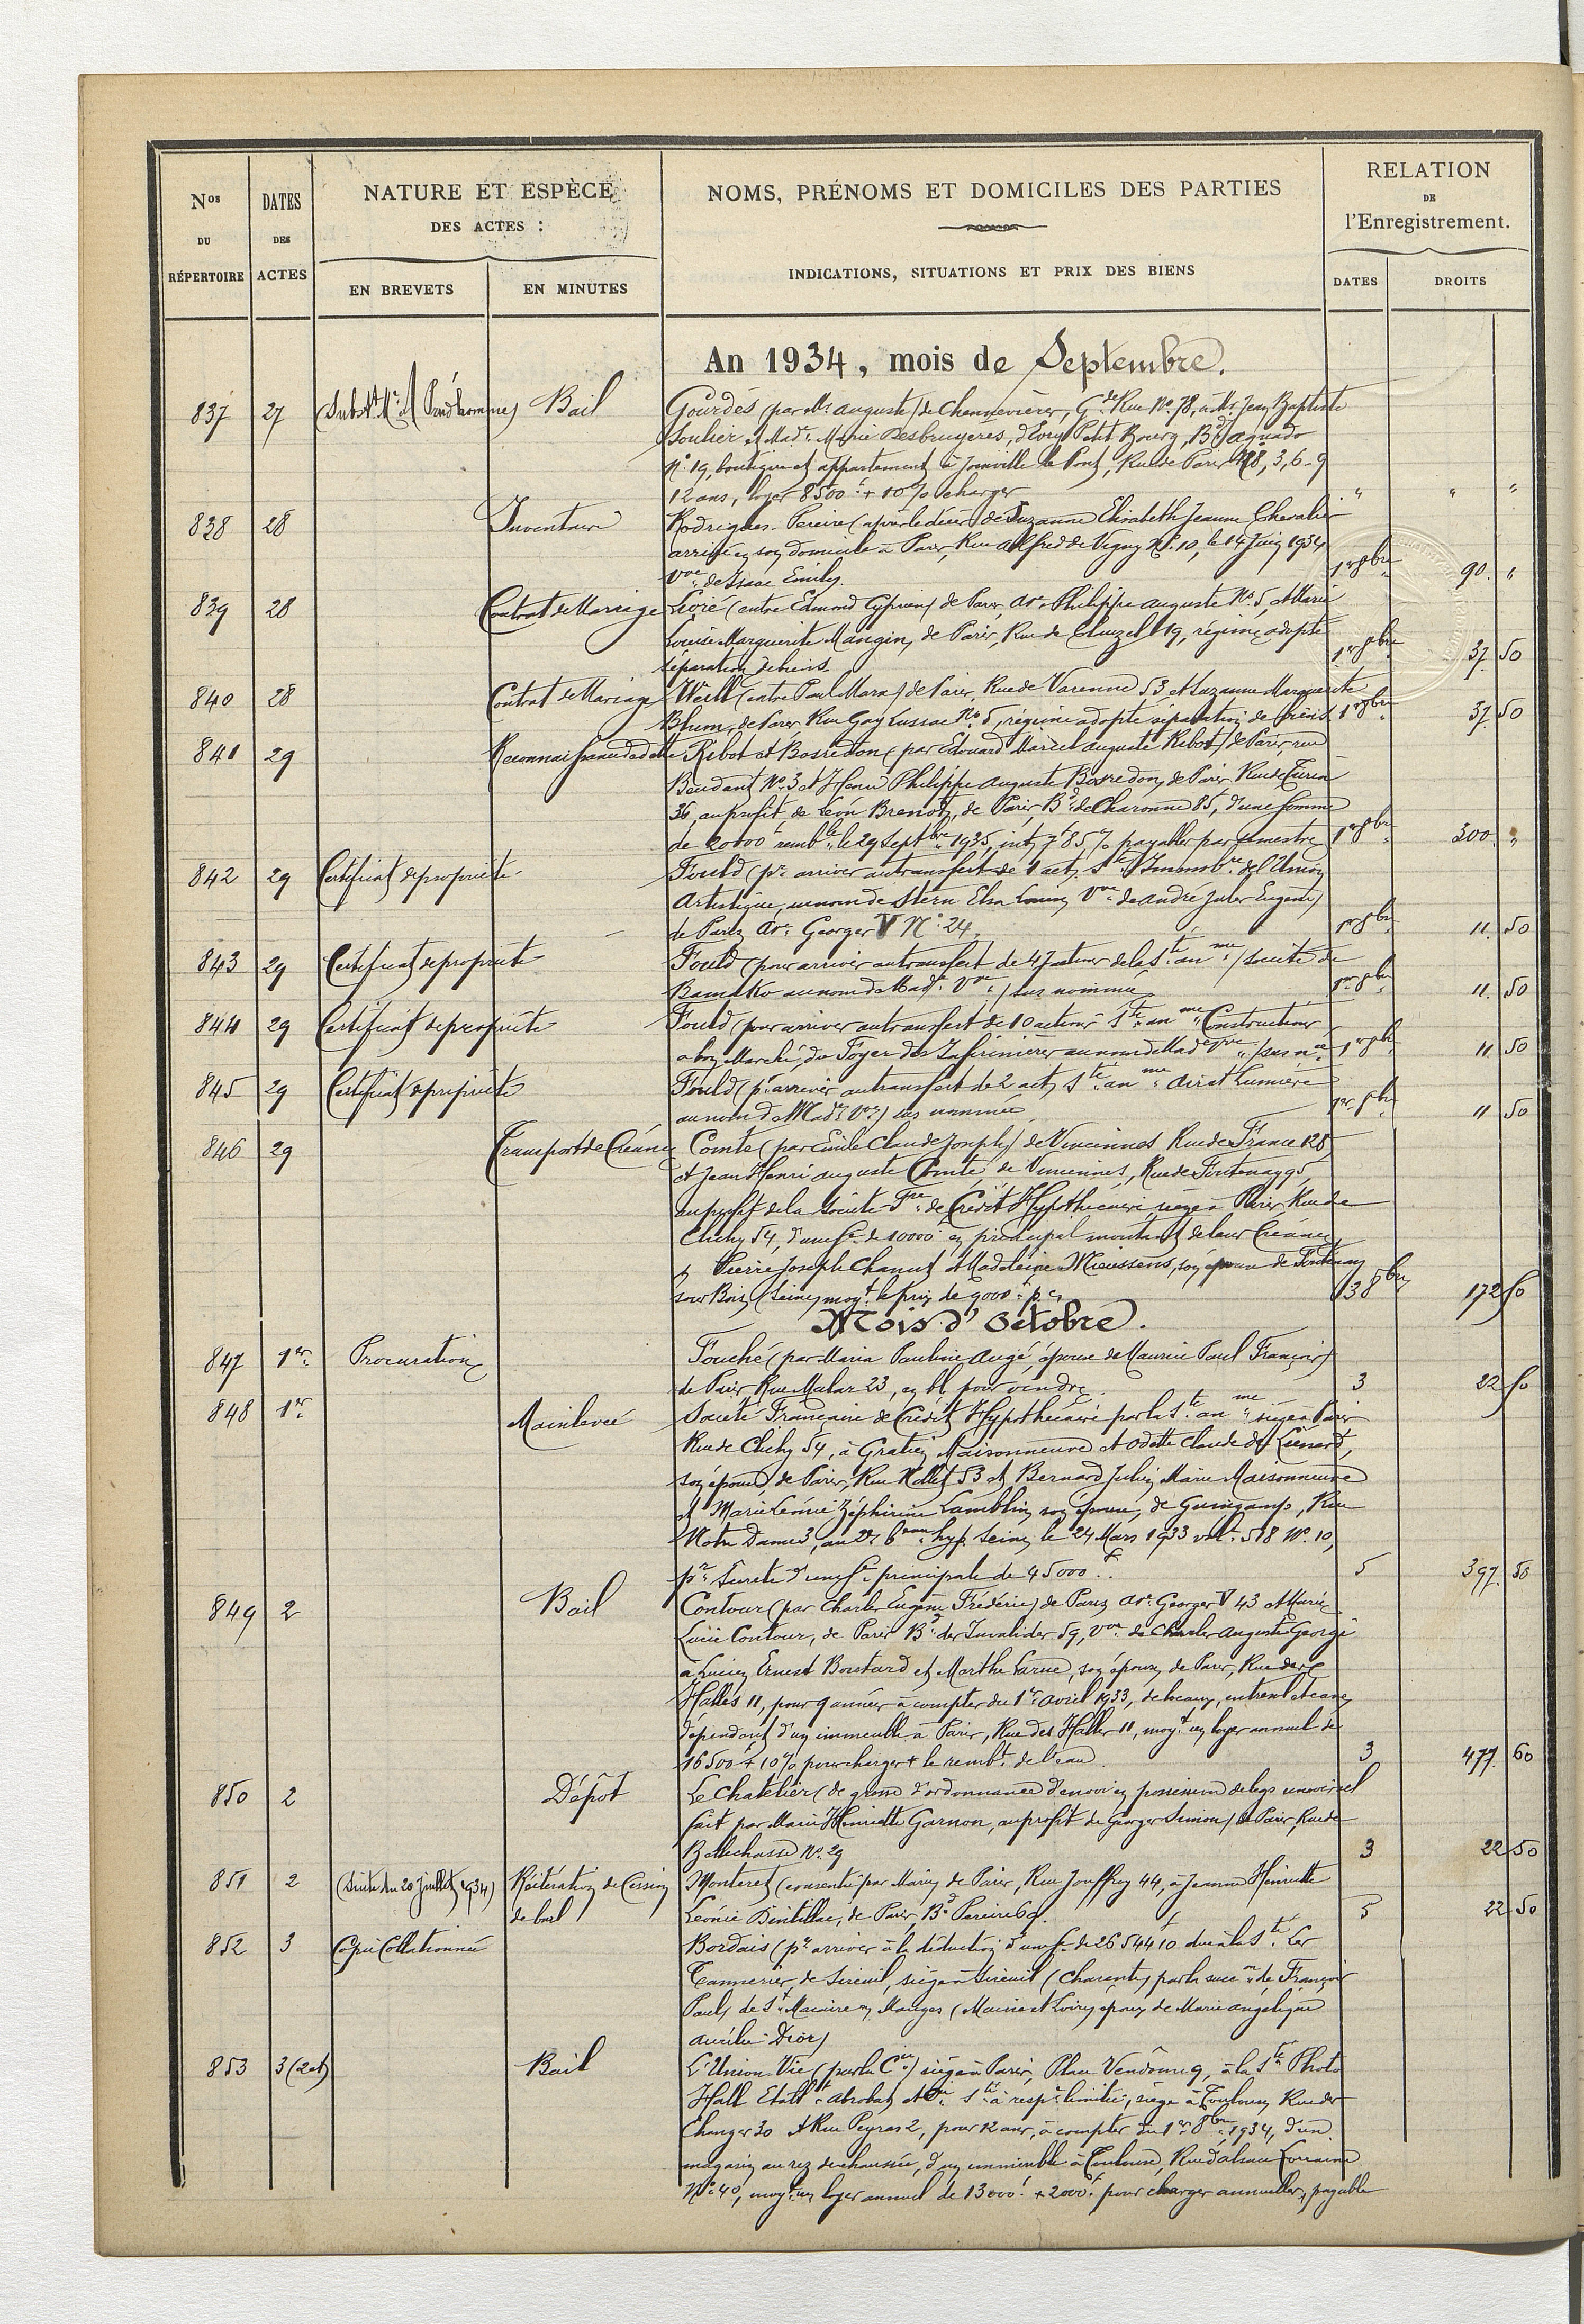 Nos DU RÉPERTOIRE
DATES DES ACTES
NATURE ET ESPÈCE DES ACTES :
EN BREVETS
EN MINUTES
NOMS, PRÉNOMS ET DOMICILES DES PARTIES
INDICATIONS, SITUATIONS ET PRIX DES BIENS
RELATION DE l'Enregistrement.
DATES
DROITS
An 1934, mois de Septembre.
837 27 (Subst. Me Prud'homme) Bail Gourdès (par Mr Auguste) de Chennevières, Gde Rue No 78, à Mr Jean Baptiste
Soulier et Made Marie Desbruyères, d'Evry Petit Bourg, Bd Aguado
No 19, boutique et appartement à Joinville le Pont, Rue de Paris 3, 6 - 9
12 ans, loyer 8500 f + 10% charges " " "
838 28 Inventaire Rodrigues-Pereire (après le décès de Suzanne Elisabeth Jeanne Chevalier
arrivé en son domicile à Paris, Rue Alfred de Vigny No 10, le 14 Juin 1934
Vve de Isaac Emile). 1er 8bre 90 "
839 28 Contrat de Mariage (entre Edmond Cyprien) de Paris, Ave Philippe Auguste No 5, et Marie
Louise Marguerite Mangin, de Paris, Rue de Clauzel 19, régime adopté
séparation de biens. 1er 8bre 37 50
840 28 Contrat de Mariage Weill (entre Paul Marx) de Paris, Rue de Varenne 53 et Suzanne Marguerite
Blum, de Paris, Rue Gay Lussac No 5, régime adopté séparation de biens 1er 8bre 37 50
841 29 Reconnaissance de dette Ribot et Bosredon (par Edouard Marcel Auguste Ribot) de Paris, rue
Beudant No 3 et Henri Philippe Auguste Bosredon, de Paris Rue de Turin
36, au profit de Léon Brenot, de Paris, Bd de Charonne 85, d'une somme
de 20000 f rembble le 29 Septbre 1935, int 7 f 85 % payables par semestre 1er 8bre 300 "
842 29 Certificat de propriété Fould (pr arriver au transfert de 1 act. Sté Immobre de l'Union
Artistique, au nom de Stern Elsa Louise, Vve de André Jules Eugène)
de Paris Ave Georges V No 24. 1er 8bre 11 50
843 29 Certificat de propriété Fould (pour arriver au transfert de 47 actions de la Sté anme) société de
Bamako au nom de Made Vve) sus nommée 1er 8bre 11 50
844 29 Certificat de propriété Fould (pour arriver au transfert de 10 actions Sté anme Constructions
à bon Marché, du Foyer des Infirmières au nom de Made Vve) sus née 1er 8bre 11 50
845 29 Certificat de propriété Fould (pr arriver au transfert de 2 act. Sté anme Air et Lumière
au nom de Made Vve) sus nommée 1er 8bre 11 50
846 29 Transport de Créance Comte (par Emile Claude Joseph) de Vincennes Rue de France 128
et Jean Henri Auguste Comte, de Vincennes, Rue de Fontenay 95,
au profit de la Société Fse de Crédit Hypothécaire, siège à Paris, Rue de
Clichy 54, d'une se de 10000 f en principal montant de leur Créance
s Pierre Joseph Chanut et Madeleine son épouse de Fontenay
sous Bois (Seine) moyt le prix de 9000 f p.c. 3 8bre 172 50
Mois d'Octobre.
847 1er Procuration Fouché (par Maria Pauline Augé, épouse de Maurice Paul François)
de Paris Rue Malar 23, en bl. pour vendre. 3 22 50
848 1er Mainlevée Société Française de Crédit Hypothécaire par la Sté anme siège à Paris
Rue de Clichy 54, à Gratien Maisonneuve et Odette Claude Liénard,
son épouse, de Paris, Rue Nollet 53 et Bernard Julien Marie Maisonneuve
et Marie Léonie Zéphirine Lamblin, son épouse, de Guingamp, Rue
Notre Dame 3, au 2e beau hyp. Seine, le 24 Mars 1933 vol. 518 No 10,
pr sûreté d'une se principale de 45000 f. 5 397 50
849 2 Bail Contour (par Charles Eugène Frédéric) de Paris Ave Georges V 43 et Marie
Lucie Contour, de Paris Bd des Invalides 59, Vve de Charles Auguste George
à Lucien Ernest Boutard et Marthe Larue, son épouse, de Paris, Rue des
Halles 11, pour 9 années à compter du 1er avril 1933, de locaux, entresol et cave
dépendant d'un immeuble à Paris, Rue des Halles 11, moyt un loyer annuel de
16500 f + 10% pour charges + le rembt de l'eau. 3 477 60
850 2 Dépôt Le Chatelier (de grosse d'ordonnance d'envoi en possession de legs universel
fait par Marie Henriette Garnon, au profit de Georges Simon) de Paris, Rue de
Bellechasse No 29 3 22 50
851 2 (Suite du 20 Juillet 1934) Réitération de Cession de bail Monteret (consentie par Marie) de Paris, Rue Jouffroy 44, à Jeanne Henriette
Léonie Dintillac, de Paris, Bd Pereire 69. 5 22 50
852 3 Copie Collationnée Bordais (pr arriver à la déduction d'une se de 26544 f 10 due à la Sté Les
Tanneries de Sireuil, siège à Sireuil (Charente) par la succon de François
Paul, de St Macaire en Mauges (Maine et Loire) époux de Marie Angélique
Aurélie Dior)
853 3 (2et) Bail L'Union-Vie (par la Cie) siège à Paris, Place Vendôme 9, à la Sté Photo
Hall Etabts et Cie Sté à respé limitée, siège à Toulouse, Rue des
Changes 30 et Rue Peyras 2, pour 12 ans, à compter du 1er 8bre 1934, d'un
magasin au rez de chaussée, d'un immeuble à Toulouse, Rue d'Alsace Lorraine
No 40, moyt un loyer annuel de 13000 f + 2000 f pour charges annuelles, payable